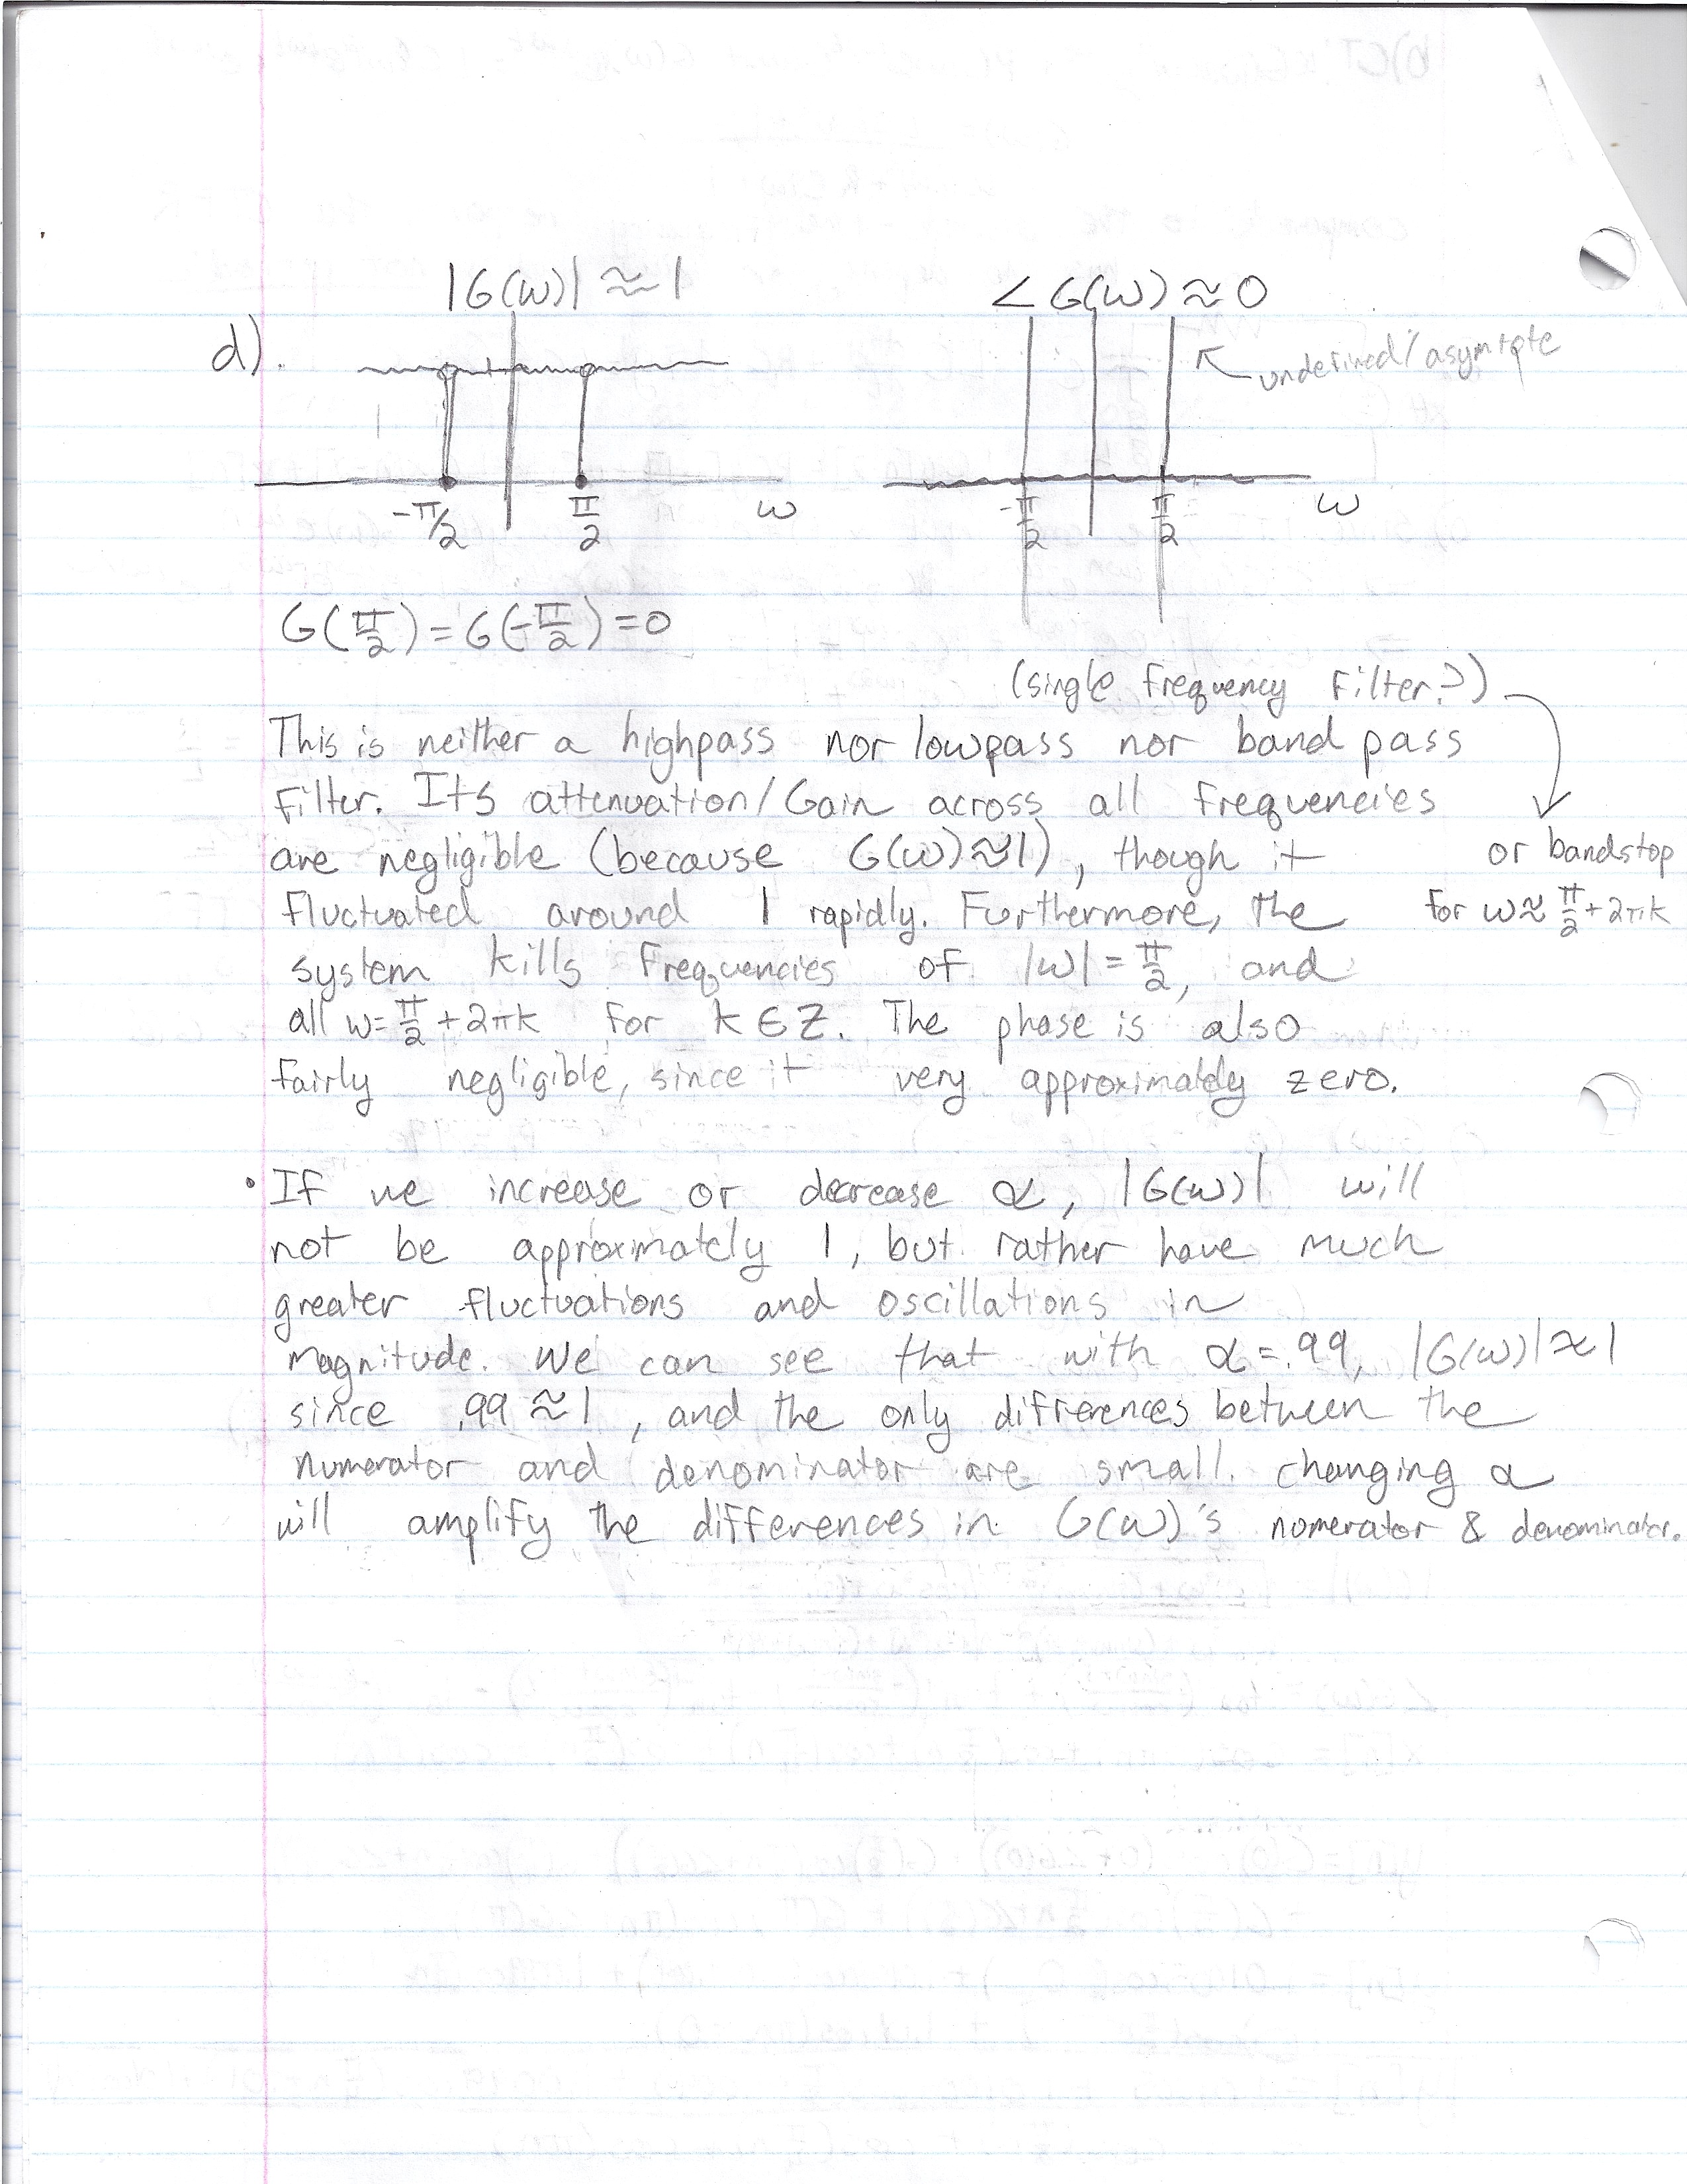 |G(ω)| ≈ 1
∠G(ω) ≈ 0
d).
undefined/asymtote
-π/2
π/2
ω
-π/2
π/2
ω
G(π/2) = G(-π/2) = 0
(single frequency filter?)
This is neither a highpass nor lowpass nor band pass
filter. Its attenuation/Gain across all frequencies
are negligible (because G(ω)≈1), though it
or bandstop
fluctuated around 1 rapidly. Furthermore, the
for ω≈ π/2+2πk
system kills frequencies of |ω| = π/2, and
all ω= π/2 + 2πk for k ∈ Z. The phase is also
fairly negligible, since it very approximately zero.
• If we increase or decrease α, |G(ω)| will
not be approximately 1, but rather have much
greater fluctuations and oscillations in
magnitude. We can see that with α = .99, |G(ω)|≈1
since .99 ≈ 1, and the only differences between the
numerator and denominator are small. changing α
will amplify the differences in G(ω)'s numerator & denominator.